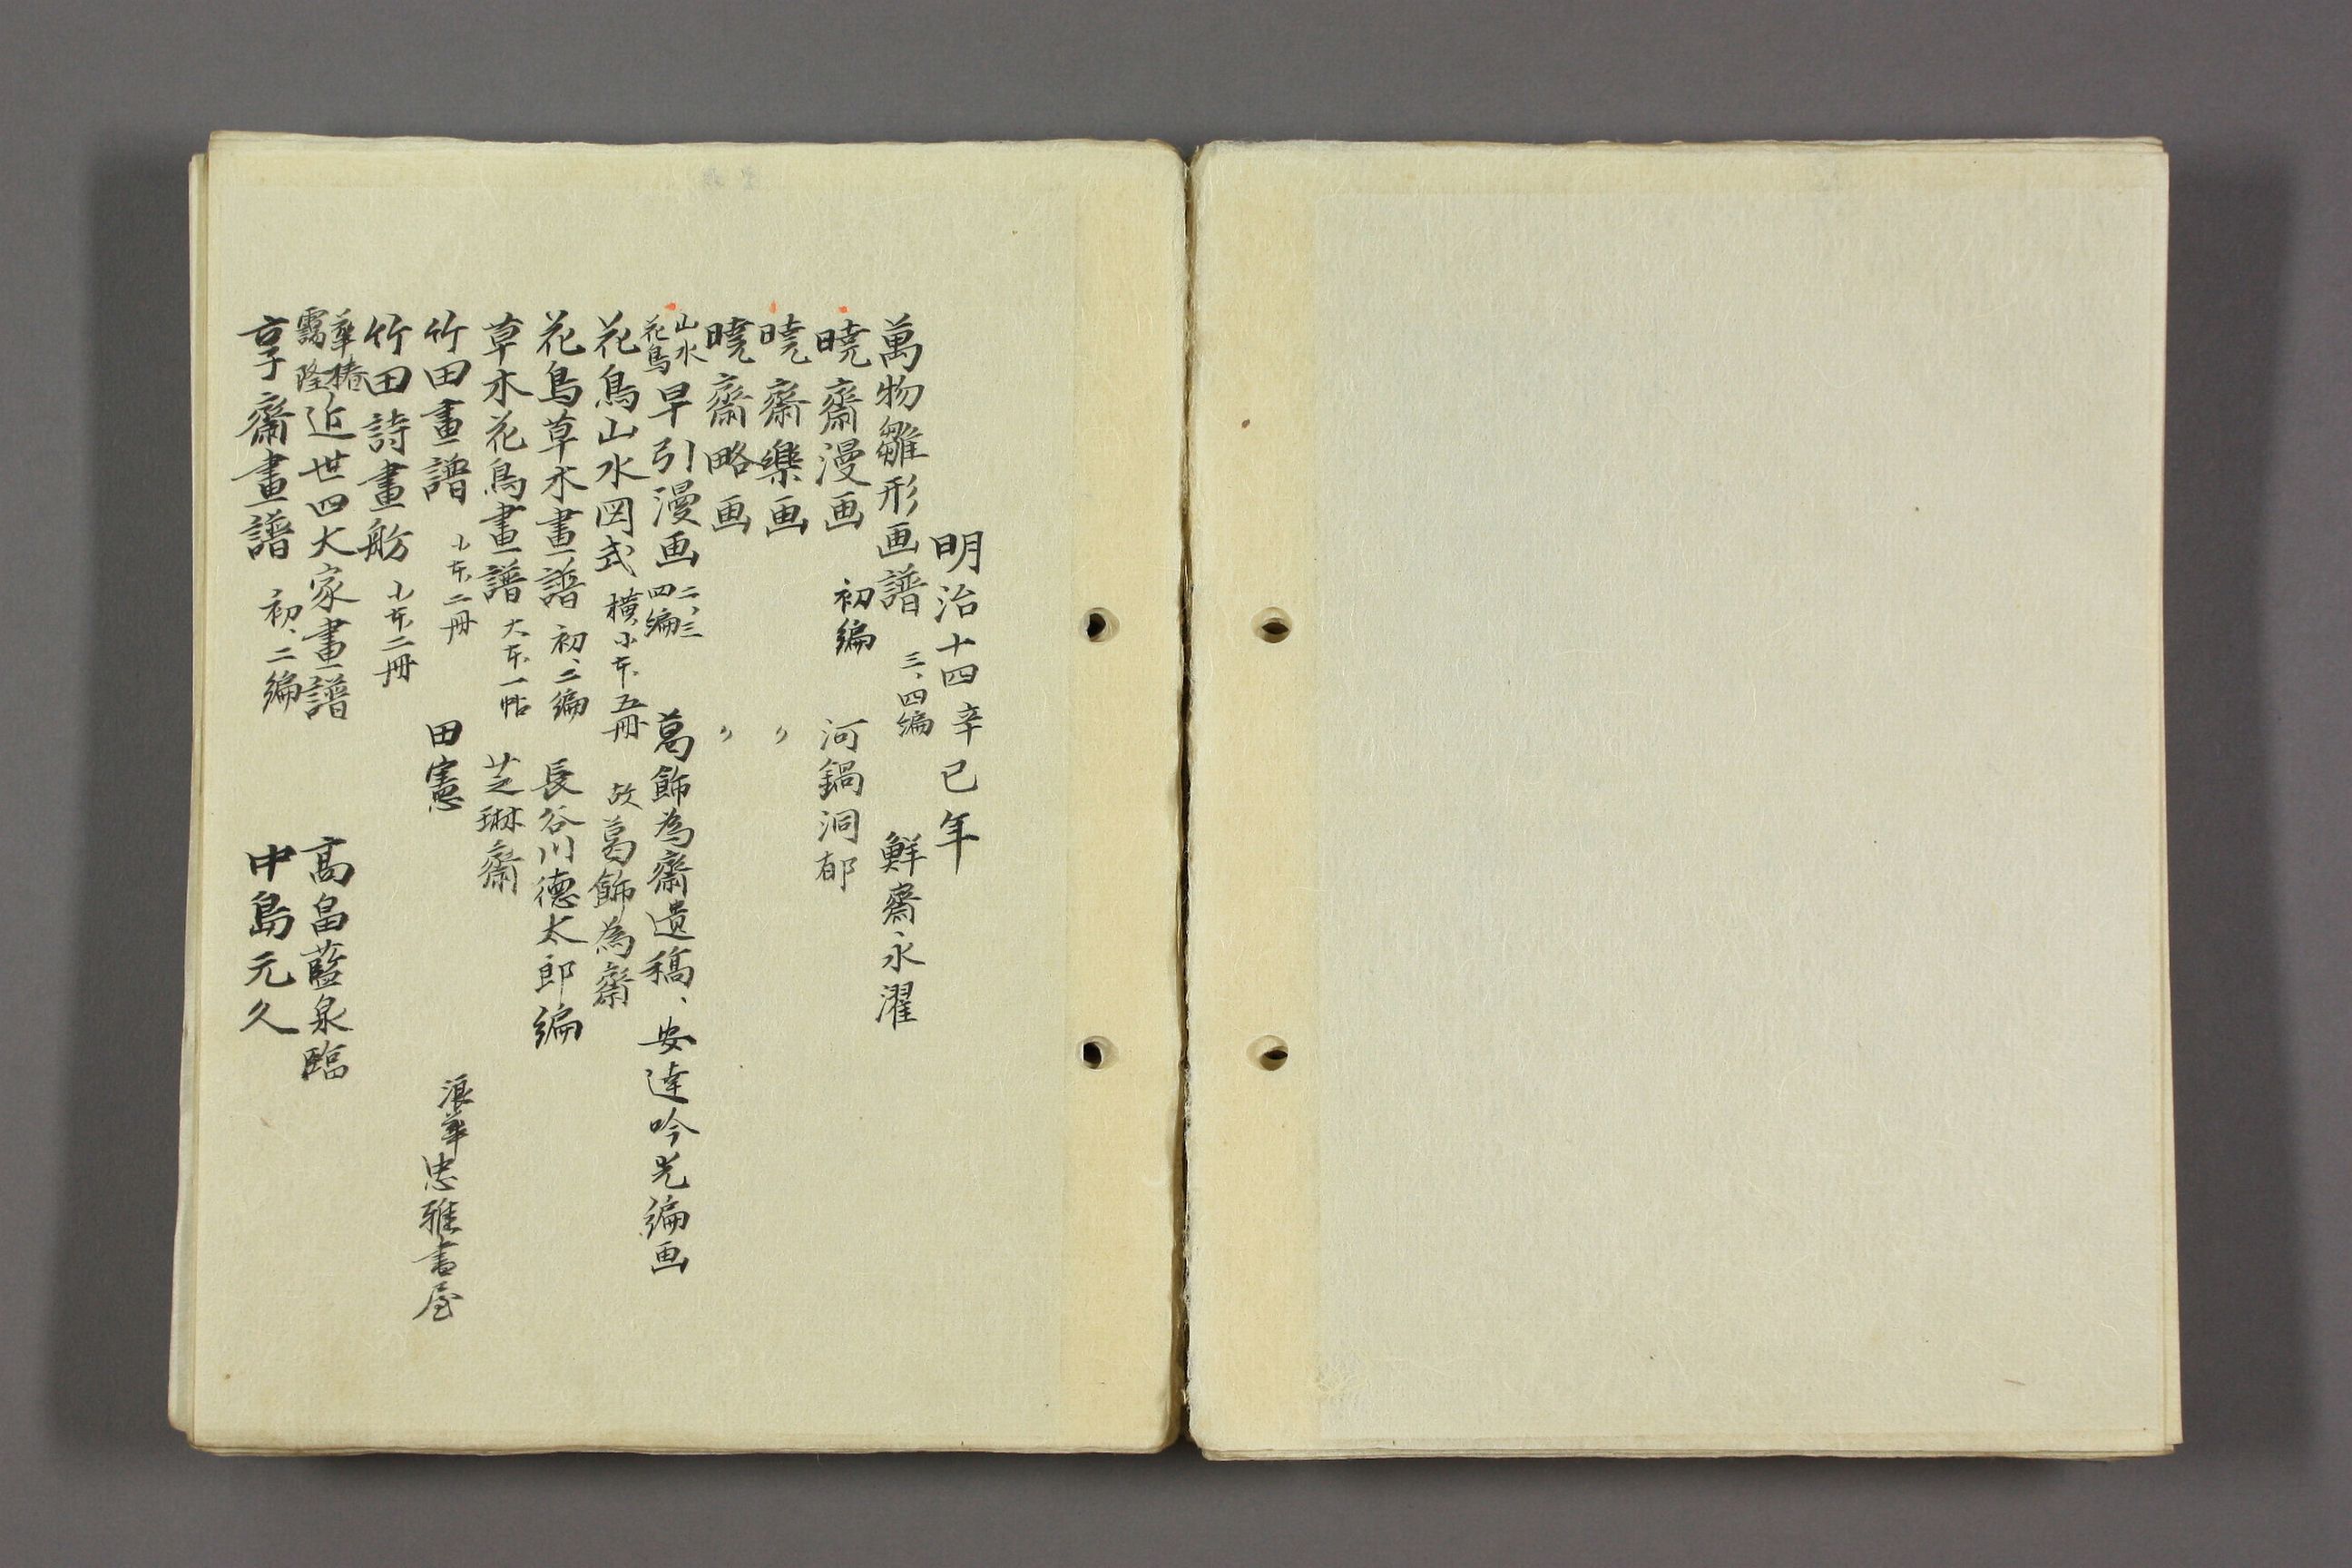 明治十四辛巳年
萬物雛形画譜 三、四編 鮮齋永濯
曉齋漫画 初編 河鍋洞郁
曉齋樂画 〃
曉齋略画 〃
山水花鳥早引漫画 二、三四編 葛飾為齋遺稿、安達吟光編画
花鳥山水図式 横小本五冊 故葛飾為齋
花鳥草木畫譜 初、二編 長谷川德太郎編
草木花鳥畫譜 大本一帖 芝琳齋
竹田畫譜 小本二冊 田憲 浪華忠雅書屋
竹田詩畫舫 小本二冊
華椿靄隆近世四大家畫譜 高畠藍泉臨
享齋畫譜 初、二編 中島元久